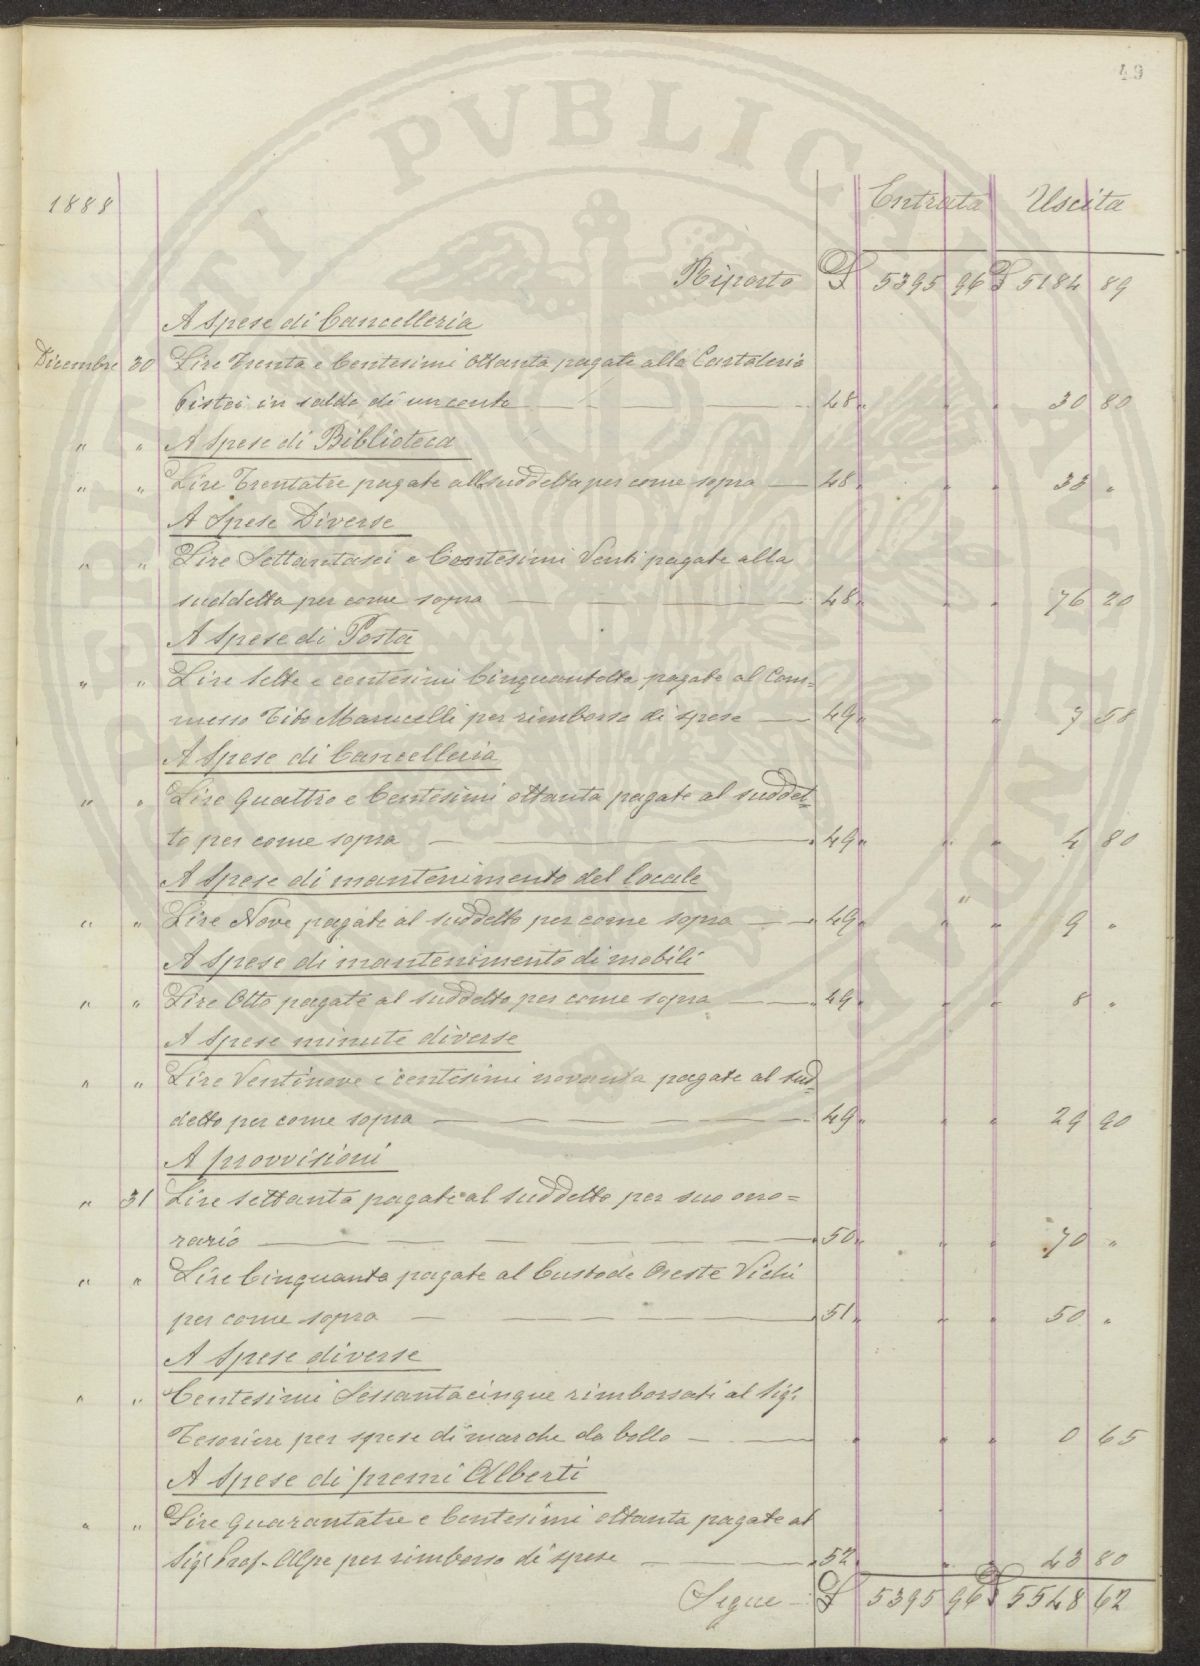 49
1888 Entrata Uscita
Riporto £ 5395 96 £ 5184 89
A Spese di Cancelleria
Dicembre 30 Lire Trenta e Centesimi Ottanta pagate alla Cartoleria
Pistoi in saldo di un conto 48 " " " 30 80
" " A Spese di Biblioteca
" " Lire Trentatre pagate alla suddetta per come sopra 48 " " " 33 "
A Spese Diverse
" " Lire Settantasei e Centesimi Venti pagate alla
suddetta per come sopra 48 " " " 76 20
A Spese di Posta
" " Lire Sette e centesimi Cinquantotto pagate al Com=
messo Tito Marucelli per rimborso di spese 49 " " 7 58
A Spese di Cancelleria
" " Lire Quattro e Centesimi ottanta pagate al suddet=
to per come sopra 49 " " " 4 80
A Spese di mantenimento del locale
" " Lire Nove pagate al suddetto per come sopra 49 " " " 9 "
A Spese di mantenimento di mobili
" " Lire Otto pagate al suddetto per come sopra 49 " " " 8 "
A Spese minute diverse
" " Lire Ventinove e centesimi novanta pagate al sud=
detto per come sopra 49 " " " 29 90
A provvisioni
" 31 Lire settanta pagate al suddetto per suo ono=
rario 50 " " " 70 "
" " Lire Cinquanta pagate al Custode Oreste Vichi
per come sopra 51 " " " 50 "
A Spese diverse
" " Centesimi Sessantacinque rimborsati al Sig.r
Tesoriere per spese di marche da bollo " " " 0 65
A Spese di premi Alberti
" " Lire Quarantatre e Centesimi ottanta pagate al
Sig.r Prof. Alpe per rimborso di spese 52 " " 43 80
Segue £ 5395 96 £ 5548 62